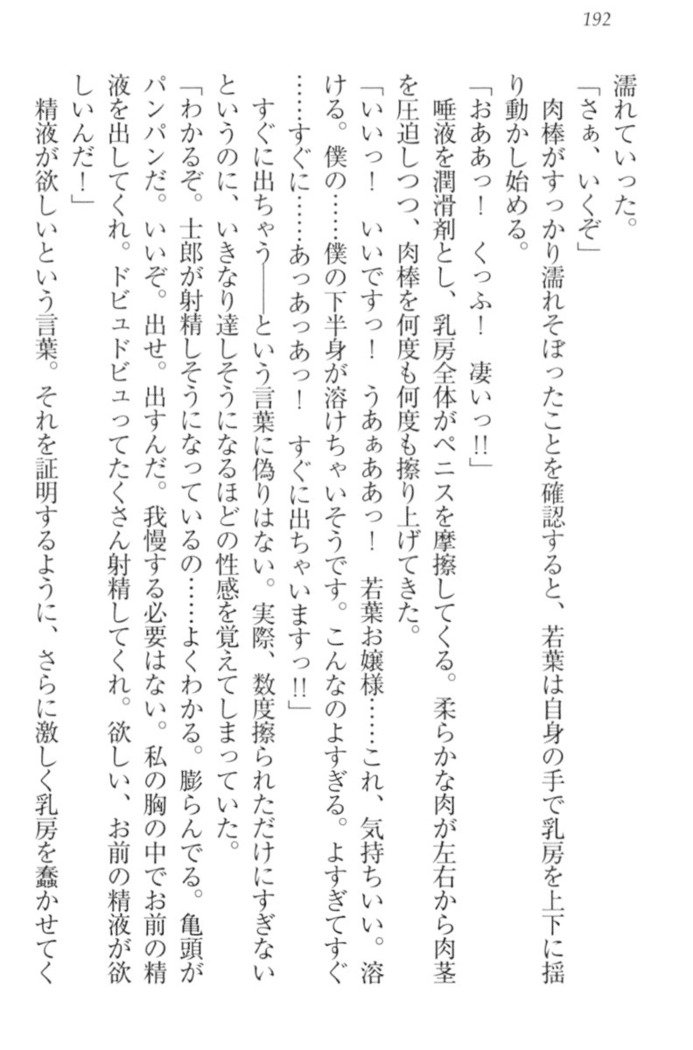 192
濡れていった。
「さぁ、いくぞ」
肉棒がすっかり濡れそぼったことを確認すると、若葉は自身の手で乳房を上下に揺
り動かし始める。
「おああっ！　くっふ！　凄いっ!!」
唾液を潤滑剤とし、乳房全体がペニスを摩擦してくる。柔らかな肉が左右から肉茎
を圧迫しつつ、肉棒を何度も何度も擦り上げてきた。
「いいっ！　いいですっ！　うあぁああっ！　若葉お嬢様……これ、気持ちいい。溶
ける。僕の……僕の下半身が溶けちゃいそうです。こんなのよすぎる。よすぎてすぐ
……すぐに……あっあっあっ！　すぐに出ちゃいますっ!!」
すぐに出ちゃう――という言葉に偽りはない。実際、数度擦られただけにすぎない
というのに、いきなり達しそうになるほどの性感を覚えてしまっていた。
「わかるぞ。士郎が射精しそうになっているの……よくわかる。膨らんでる。亀頭が
パンパンだ。いいぞ。出せ。出すんだ。我慢する必要はない。私の胸の中でお前の精
液を出してくれ。ドビュドビュってたくさん射精してくれ。欲しい、お前の精液が欲
しいんだ！」
精液が欲しいという言葉。それを証明するように、さらに激しく乳房を蠢かせてく